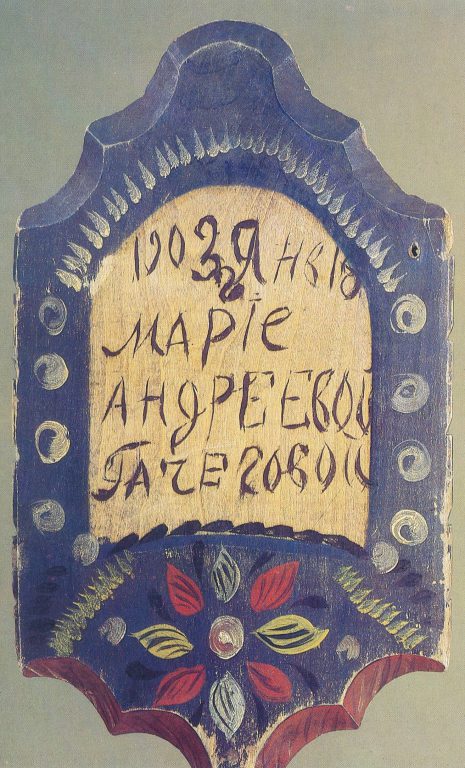 1903 Я НВ 18
МАРІЕ
АНДРЕЕВОЙ
ГАЧЕГОВОЙ